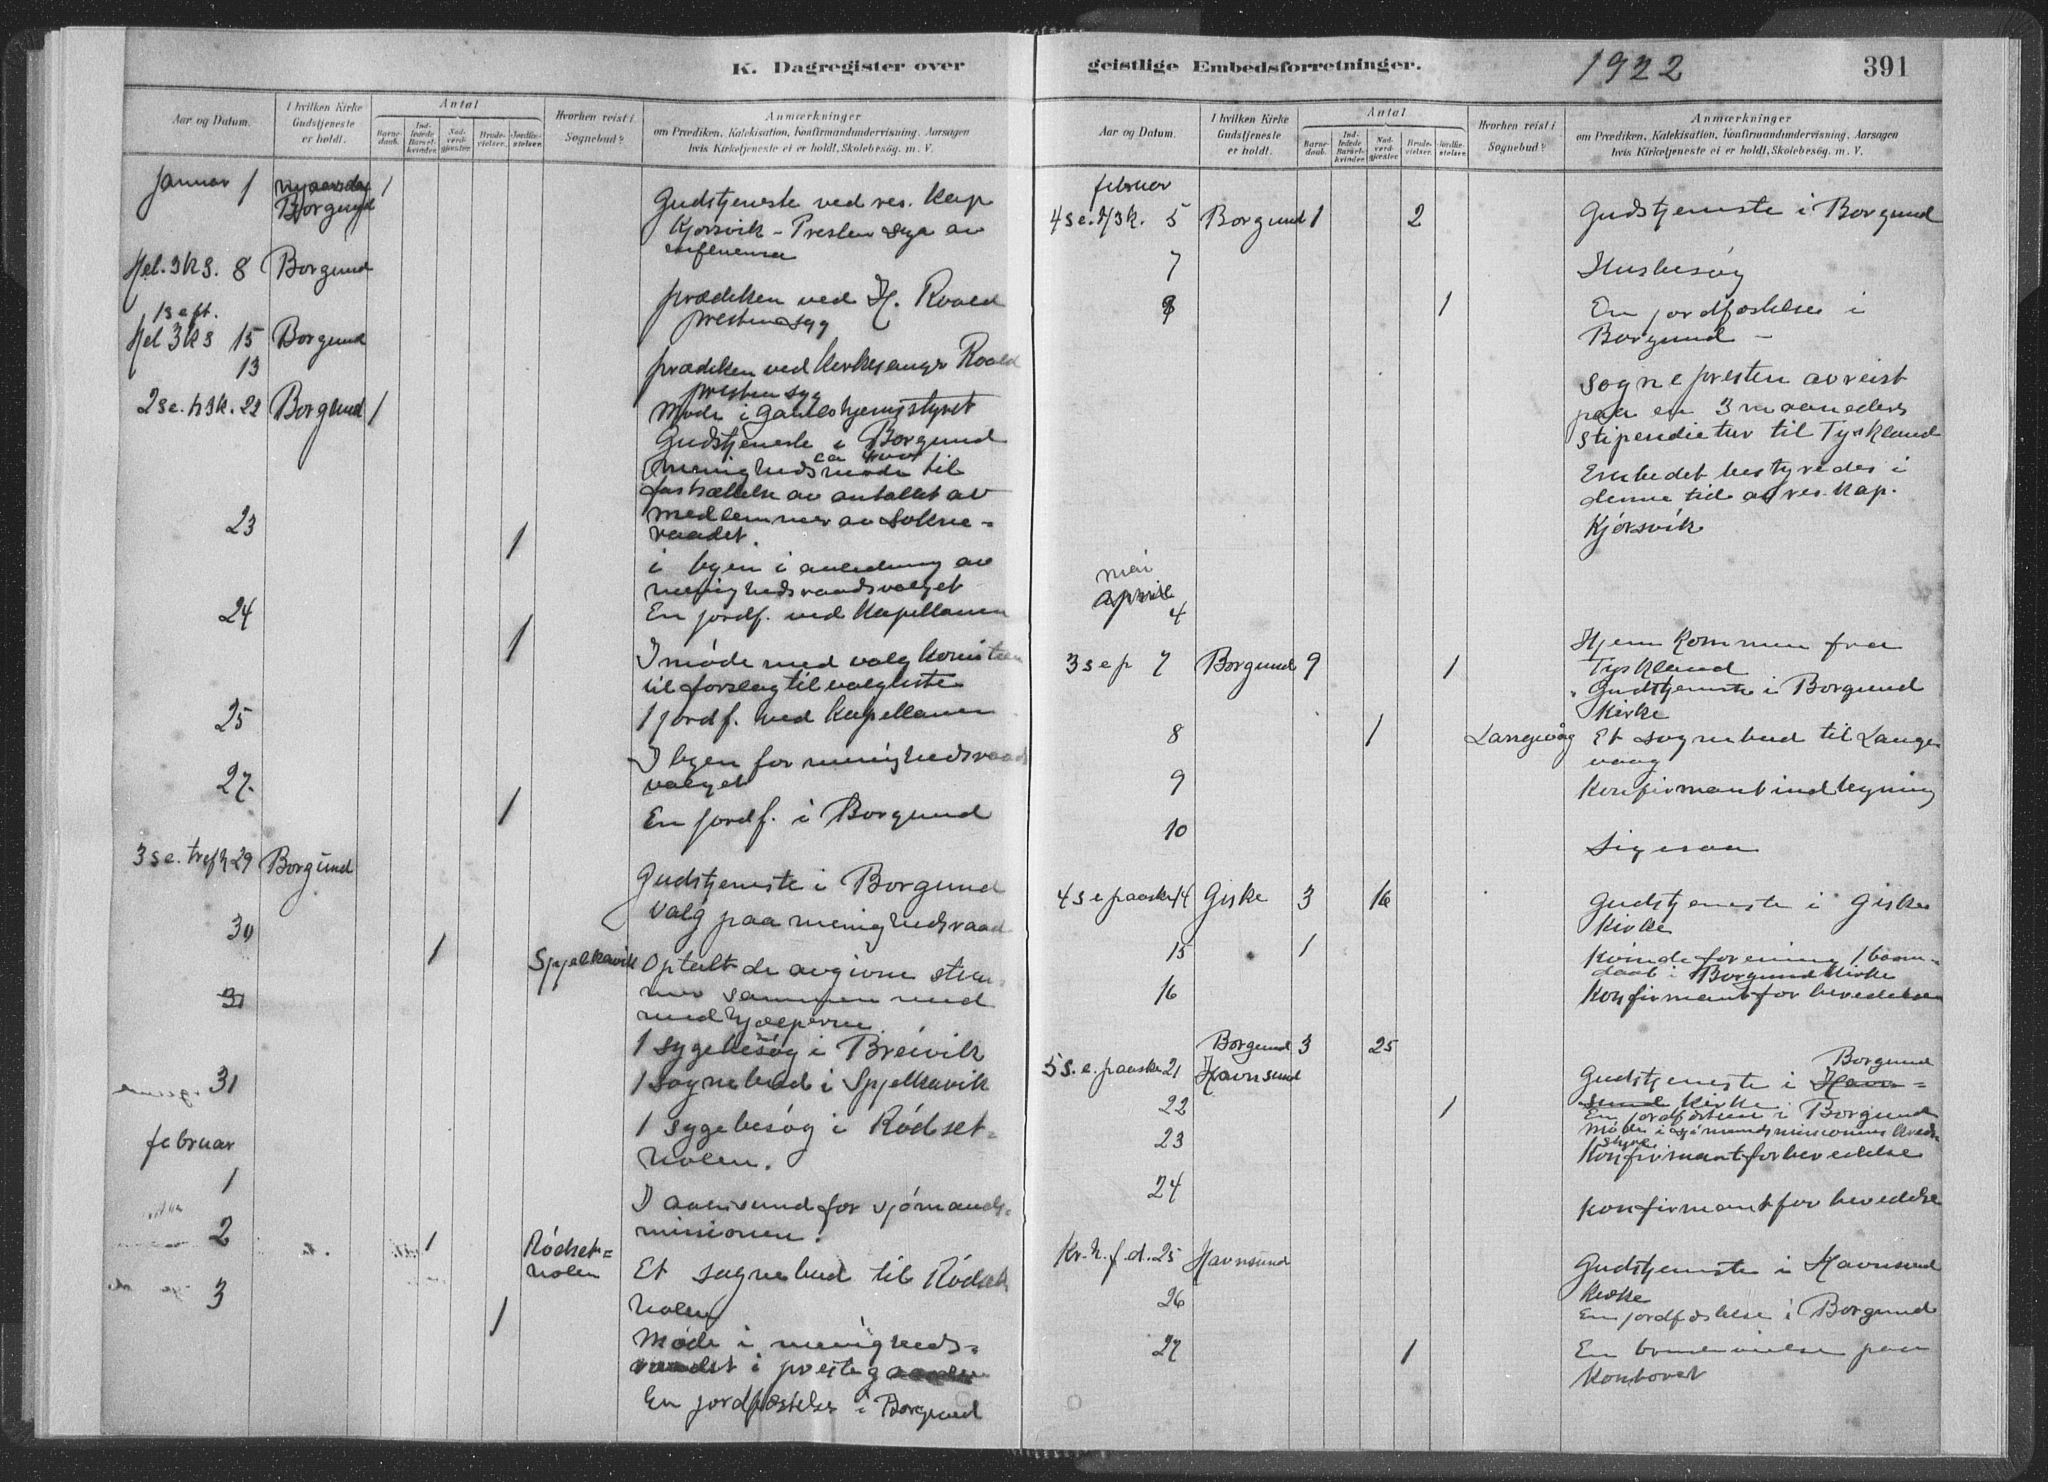 K. Dagregister over
Aar og Datum.
I hvilken Kirke Gudstjeneste er holdt.
Antal
Barnedaab.
Indledede Barselkvinder.
Nadverdgjester.
Brudevielser.
Jordfæstelser.
Hvorhen reist i Sognebud?
Anmærkninger
om Prædiken, Katekisation, Konfirmandundervisning, Aarsagen
hvis Kirketjeneste ei er holdt, Skolebesøg. m. V.
Januar 1 nyaarsdag 1
Borgund
Gudstjeneste ved res. kap
Kjørsvik - Presten syg av
influensa
Hel. 3 k s. 8 Borgund
prædiken ved H. Roald
presten syg
1 s eft.
Hel 3 k s 15 Borgund
13
prædiken ved kirkesanger Roald
presten syg
2 s e. h 3 k. 22 Borgund 1
Møde i
Gudstjeneste i Borgund
menighedsmøde til
fastsættelse av antallet av
medlemmer av sokne-
raadet.
23 1
i byen i anledning av
menighedsraadsvalget
En jordf. ved kapellanen
24 1
I møde med valg komiteen
til forslag til valgliste
1 jordf. ved kapellanen
25
I byen for menighedsraads
valget
27. 1
En jordf. i Borgund
3 s e. tref h 29 Borgund
Gudstjeneste i Borgund
valg paa menighedsraad
30 1 Spjelkavik
Optalt de avgivne stem-
mer sammen med
medhjælperne
31
1 sygebesøg i Breivik
1 sognebud i Spjelkavik
31
1 sygebesøg i Rødset-
holen.
februar
1
I aalesund for sjømands-
missionen.
2 1 Rødset-
holen
Et sognebud til Rødset
holen
3 1
Møde i menigheds-
raadet i prestegaarden
En jordfæstelse i Borgund
geistlige Embedsforretninger.
1922
391
Aar og Datum.
I hvilken Kirke Gudstjeneste er holdt.
Antal
Barnedaab.
Indledede Barselkvinder.
Nadverdgjester.
Brudevielser.
Jordfæstelser.
Hvorhen reist i Sognebud?
Anmærkninger
om Prædiken, Katekisation, Konfirmandundervisning, Aarsagen
hvis Kirketjeneste ei er holdt, Skolebesøg. m. V.
februar
4 s e. h 3 k. 5 Borgund 1 2 Gudstjeneste i Borgund
7 Husbesøg
8 1 En jordfæstelse i
Borgund -
sognepresten avreist
paa en 3 maaneders
stipendietur til Tyskland
Embedet bestyredes i
denne tid av res. kap.
Kjørsvik
mai
april
4
Hjem kommen fra
Tyskland
3 s e p 7 Borgund 9 1
Gudstjeneste i Borgund
kirke
8 1 Langevåg Et sognebud til Lange
vaag
9 Konfirmantindtegning
10
4 s e paaske 14 Giske 3 16 Gudstjeneste i Giske
Kirke
15 1 Kvindeforening 1 barne-
daab i Borgund kirke
16 Konfirmantforberedelse
Borgund 3 25
5 s. e. paaske 21 Havnsund
Gudstjeneste i Havn-
Borgund
sund kirke
22 1 En jordfæstelse i Borgund
Møde i sjømandsmissionens kreds-
styre
23 Konfirmantforberedelse
24 konfirmantforberedelse
Kr. h. f. d. 25 Havnsund Gudstjeneste i Havnsund
kirke
26 En jordfæstelse i Borgund
27 1 En brudevielse paa
kontoret